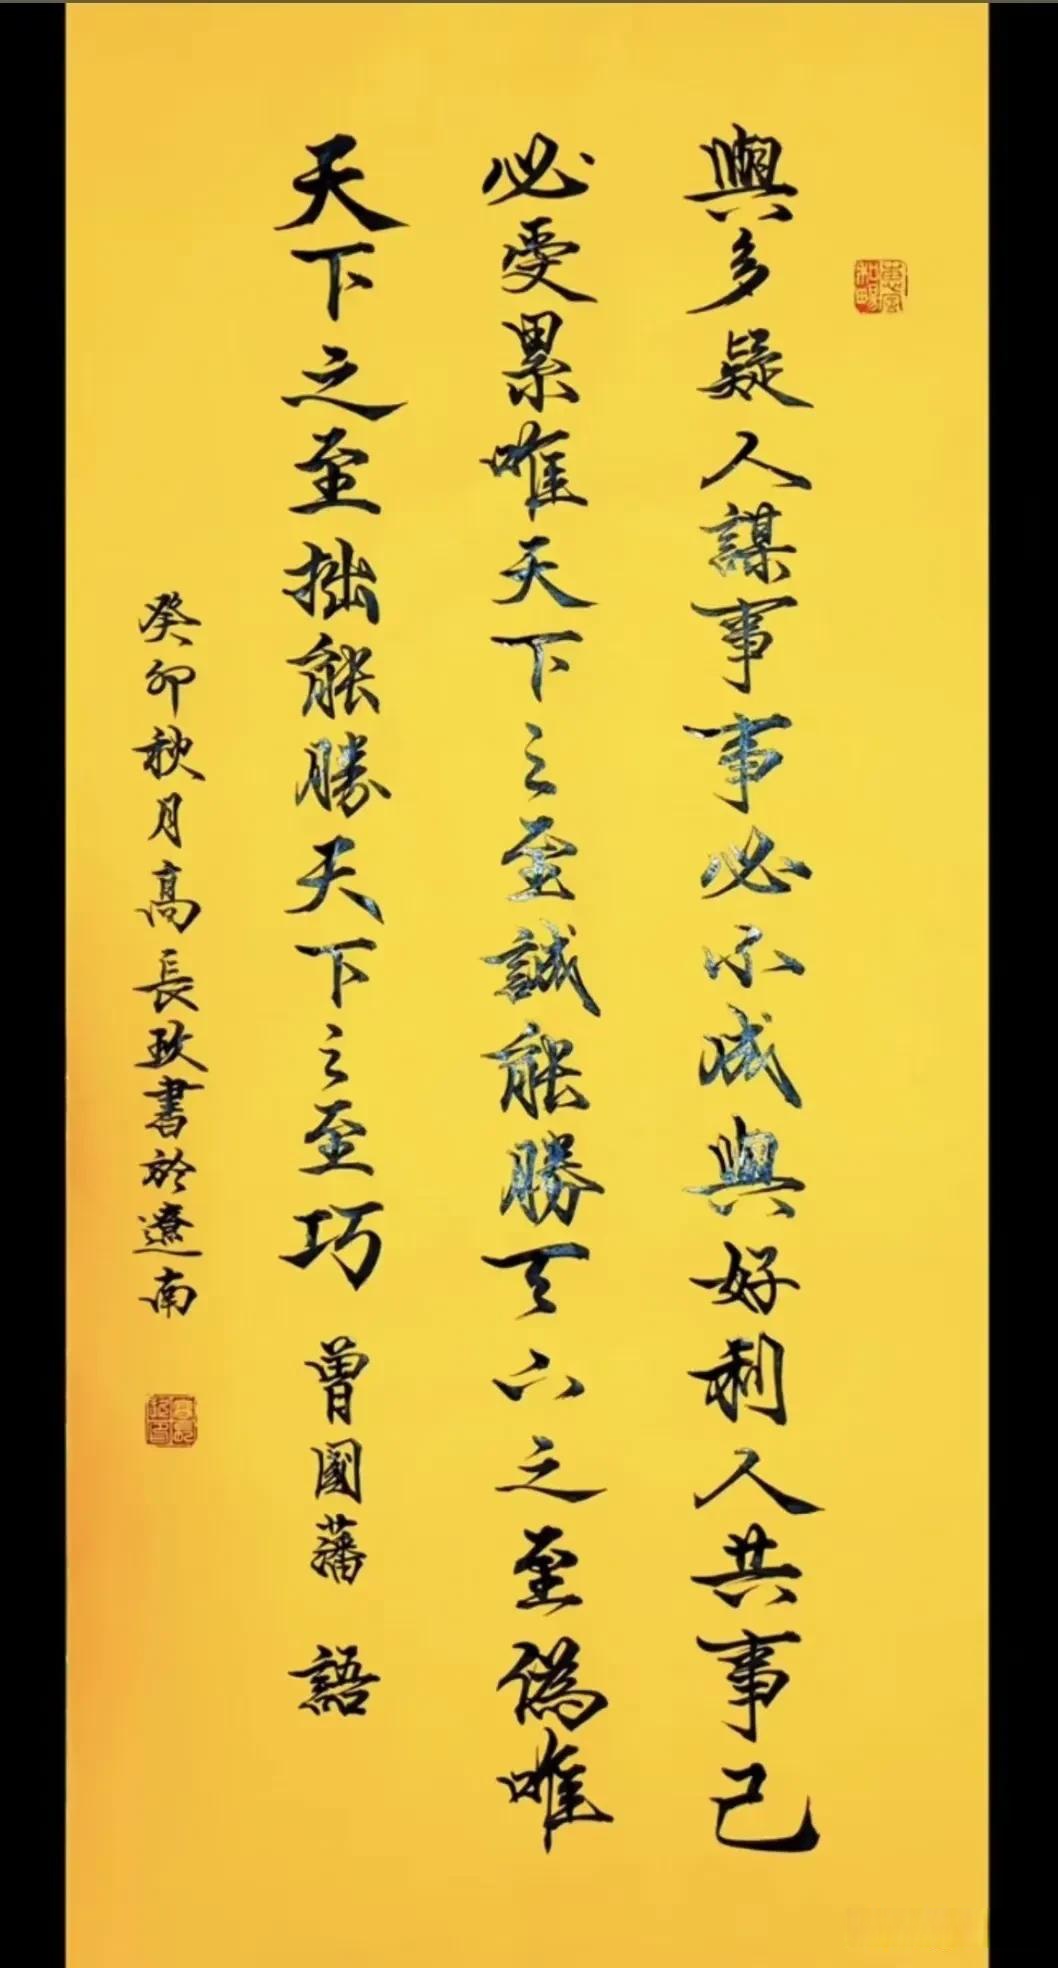 惠風和暢
與多疑人謀事事必不成與好利人共事己
必受累唯天下之至誠能勝天下之至偽唯
天下之至拙能勝天下之至巧 曾國藩 語
癸卯秋月高長玖書於遼南